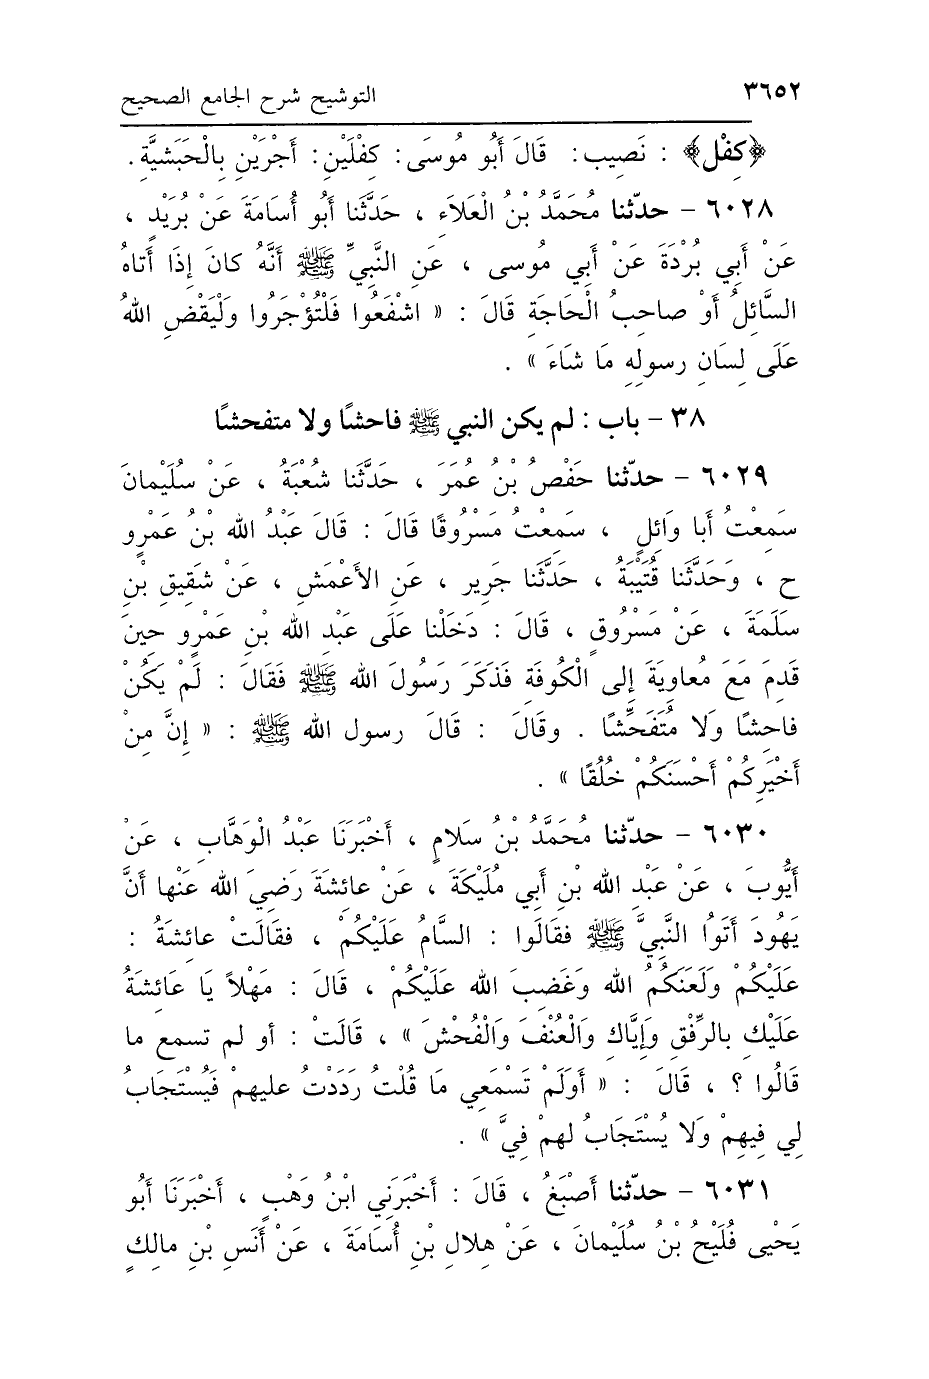 ٣٦٥٢ التوشيح شرح الجامع الصحيح
﴿كِفْل﴾ : نَصِيب: قَالَ أَبُو مُوسَى: كِفْلَيْنِ: أَجْرَيْنِ بِالْحَبَشِيَّةِ.
٦٠٢٨ – حدّثنا مُحَمَّدُ بْنُ الْعَلاَءِ ، حَدَّثَنا أَبُو أُسَامَةَ عَنْ بُرَيْدٍ ،
عَنْ أَبِي بُرْدَةَ عَنْ أَبِي مُوسى ، عَنِ النَّبِيِّ ﷺ أَنَّهُ كانَ إِذَا أَتاهُ
السَّائِلُ أَوْ صاحِبُ الْحَاجَةِ قَالَ : « اشْفَعُوا فَلْتُؤْجَرُوا وَلْيَقْضِ اللهُ
عَلَى لِسَانِ رسولِهِ مَا شَاءَ » .
٣٨ – باب : لم يكن النبي ﷺ فاحشًا ولا متفحشًا
٦٠٢٩ – حدّثنا حَفْصُ بْنُ عُمَرَ ، حَدَّثَنا شُعْبَةُ ، عَنْ سُلَيْمانَ
سَمِعْتُ أَبا وَائِلٍ ، سَمِعْتُ مَسْرُوقًا قَالَ : قَالَ عَبْدُ الله بْنُ عَمْرٍو
ح ، وَحَدَّثَنا قُتَيْبَةُ ، حَدَّثَنا جَرِير ، عَنِ الأَعْمَشِ ، عَنْ شَقِيقِ بْنِ
سَلَمَةَ ، عَنْ مَسْرُوقٍ ، قَالَ : دَخَلْنا عَلَى عَبْدِ الله بْنِ عَمْرٍو حِينَ
قَدِمَ مَعَ مُعاوِيَةَ إِلى الْكُوفَةِ فَذَكَرَ رَسُولَ الله ﷺ فَقَالَ : لَمْ يَكُنْ
فاحِشًا وَلا مُتَفَحِّشًا . وقَالَ : قَالَ رسول الله ﷺ : « إِنَّ مِنْ
أَخْيَرِكُمْ أَحْسَنَكُمْ خُلُقًا » .
٦٠٣٠ – حدّثنا مُحَمَّدُ بْنُ سَلامٍ ، أَخْبَرَنَا عَبْدُ الْوَهَّابِ ، عَنْ
أَيُّوبَ ، عَنْ عَبْدِ الله بْنِ أَبِي مُلَيْكَةَ ، عَنْ عائِشَةَ رَضِيَ الله عَنْها أَنَّ
يَهُودَ أَتَوُا النَّبِيَّ ﷺ فقَالُوا : السَّامُ عَلَيْكُمْ ، فقَالَتْ عائِشَةُ :
عَلَيْكُمْ وَلَعَنَكُمُ الله وَغَضِبَ الله عَلَيْكُمْ ، قَالَ : مَهْلاً يَا عَائِشَةُ
عَلَيْكِ بالرِّفْقِ وَإِيَّاكِ وَالْعُنْفَ وَالْفُحْشَ » ، قَالَتْ : أو لم تسمع ما
قَالُوا ؟ ، قَالَ : « أَوَلَمْ تَسْمَعِي مَا قُلْتُ رَدَدْتُ عليهمْ فَيُسْتَجَابُ
لِي فِيهِمْ وَلا يُسْتَجَابُ لهمْ فِيَّ » .
٦٠٣١ – حدّثنا أَصْبَغُ ، قَالَ : أَخْبَرَنِي ابْنُ وَهْبٍ ، أَخْبَرَنَا أَبُو
يَحْيى فُلَيْحُ بْنُ سُلَيْمانَ ، عَنْ هِلالِ بْنِ أُسَامَةَ ، عَنْ أَنَسِ بْنِ مالِكٍ